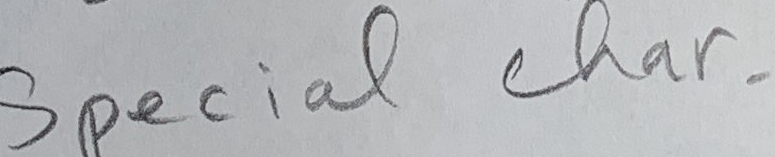 Special char.